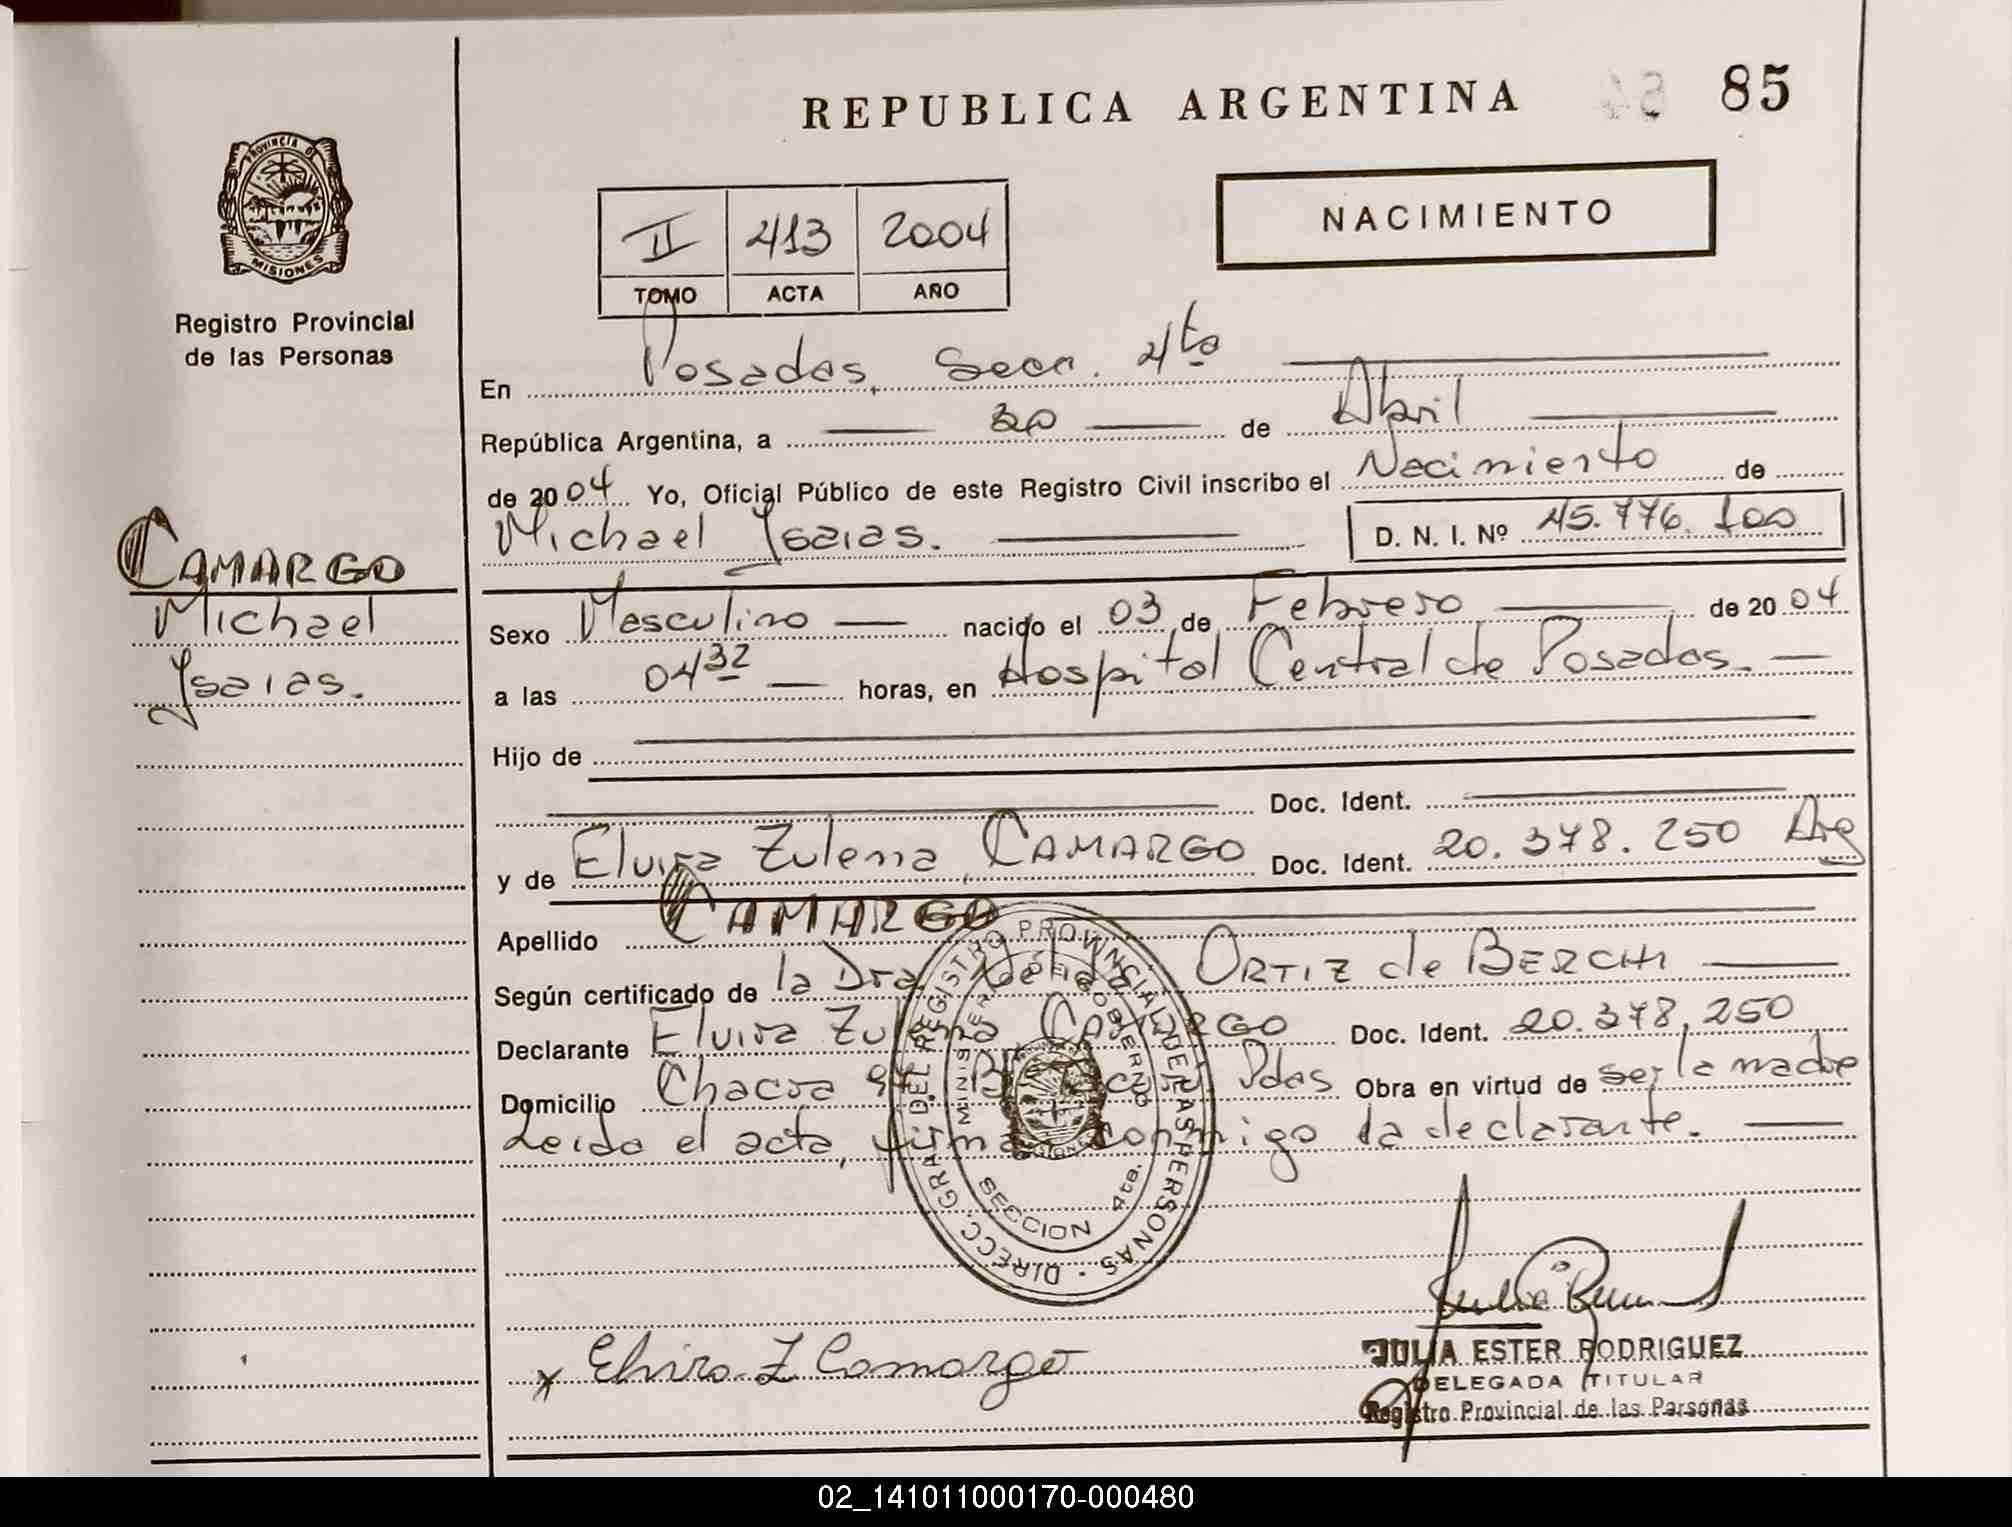 REPUBLICA ARGENTINA 84 85
PROVINCIA DE
MISIONES
Registro Provincial
de las Personas
NACIMIENTO
II 413 2004
TOMO ACTA AÑO
En Posadas, Secc. 4ta
República Argentina, a 30 de Abril
de 2004 Yo, Oficial Público de este Registro Civil inscribo el Nacimiento de
Michael Ysaias. D. N. I. Nº 45.776.100
CAMARGO
Michael
Ysaias.
Sexo Masculino nacido el 03 de Febrero de 2004
a las 04 32 horas, en Hospital Central de Posadas.
Hijo de
Doc. Ident.
y de Elvira Zulema CAMARGO Doc. Ident. 20.378.250 Arg
Apellido CAMARGO
Según certificado de la Dra. ORTIZ de BERCHI
Declarante Elvira Zulema CAMARGO Doc. Ident. 20.378.250
Domicilio Chacra Pdas Obra en virtud de ser la madre
Leida el acta, firma conmigo la declarante.
DIRECC. GRAL. DEL REGISTRO PROVINCIAL DE LAS PERSONAS
MINISTERIO DE GOBIERNO
SECCION 4ta.
Elvira Z Camargo
JULIA ESTER RODRIGUEZ
DELEGADA TITULAR
Registro Provincial de las Personas
02_141011000170-000480